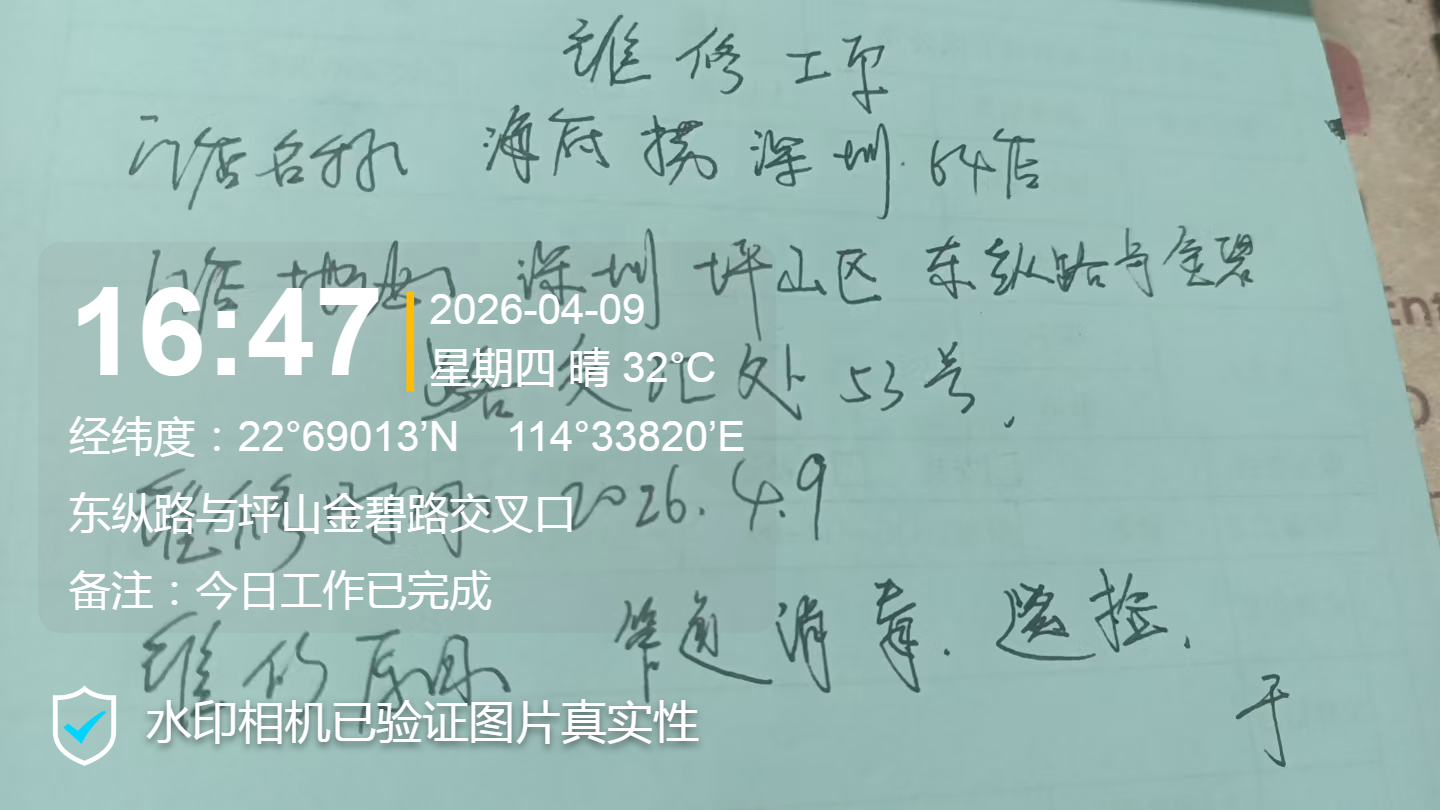 维修工单
门店名称 海底捞深圳64店
门店地址 深圳坪山区东纵路与金碧
路交汇处53号.
维修时间 2026.4.9
维修原因 管道消毒.送检.
于
16:47
2026-04-09
星期四 晴 32°C
经纬度：22°69013’N 114°33820’E
东纵路与坪山金碧路交叉口
备注：今日工作已完成
水印相机已验证图片真实性